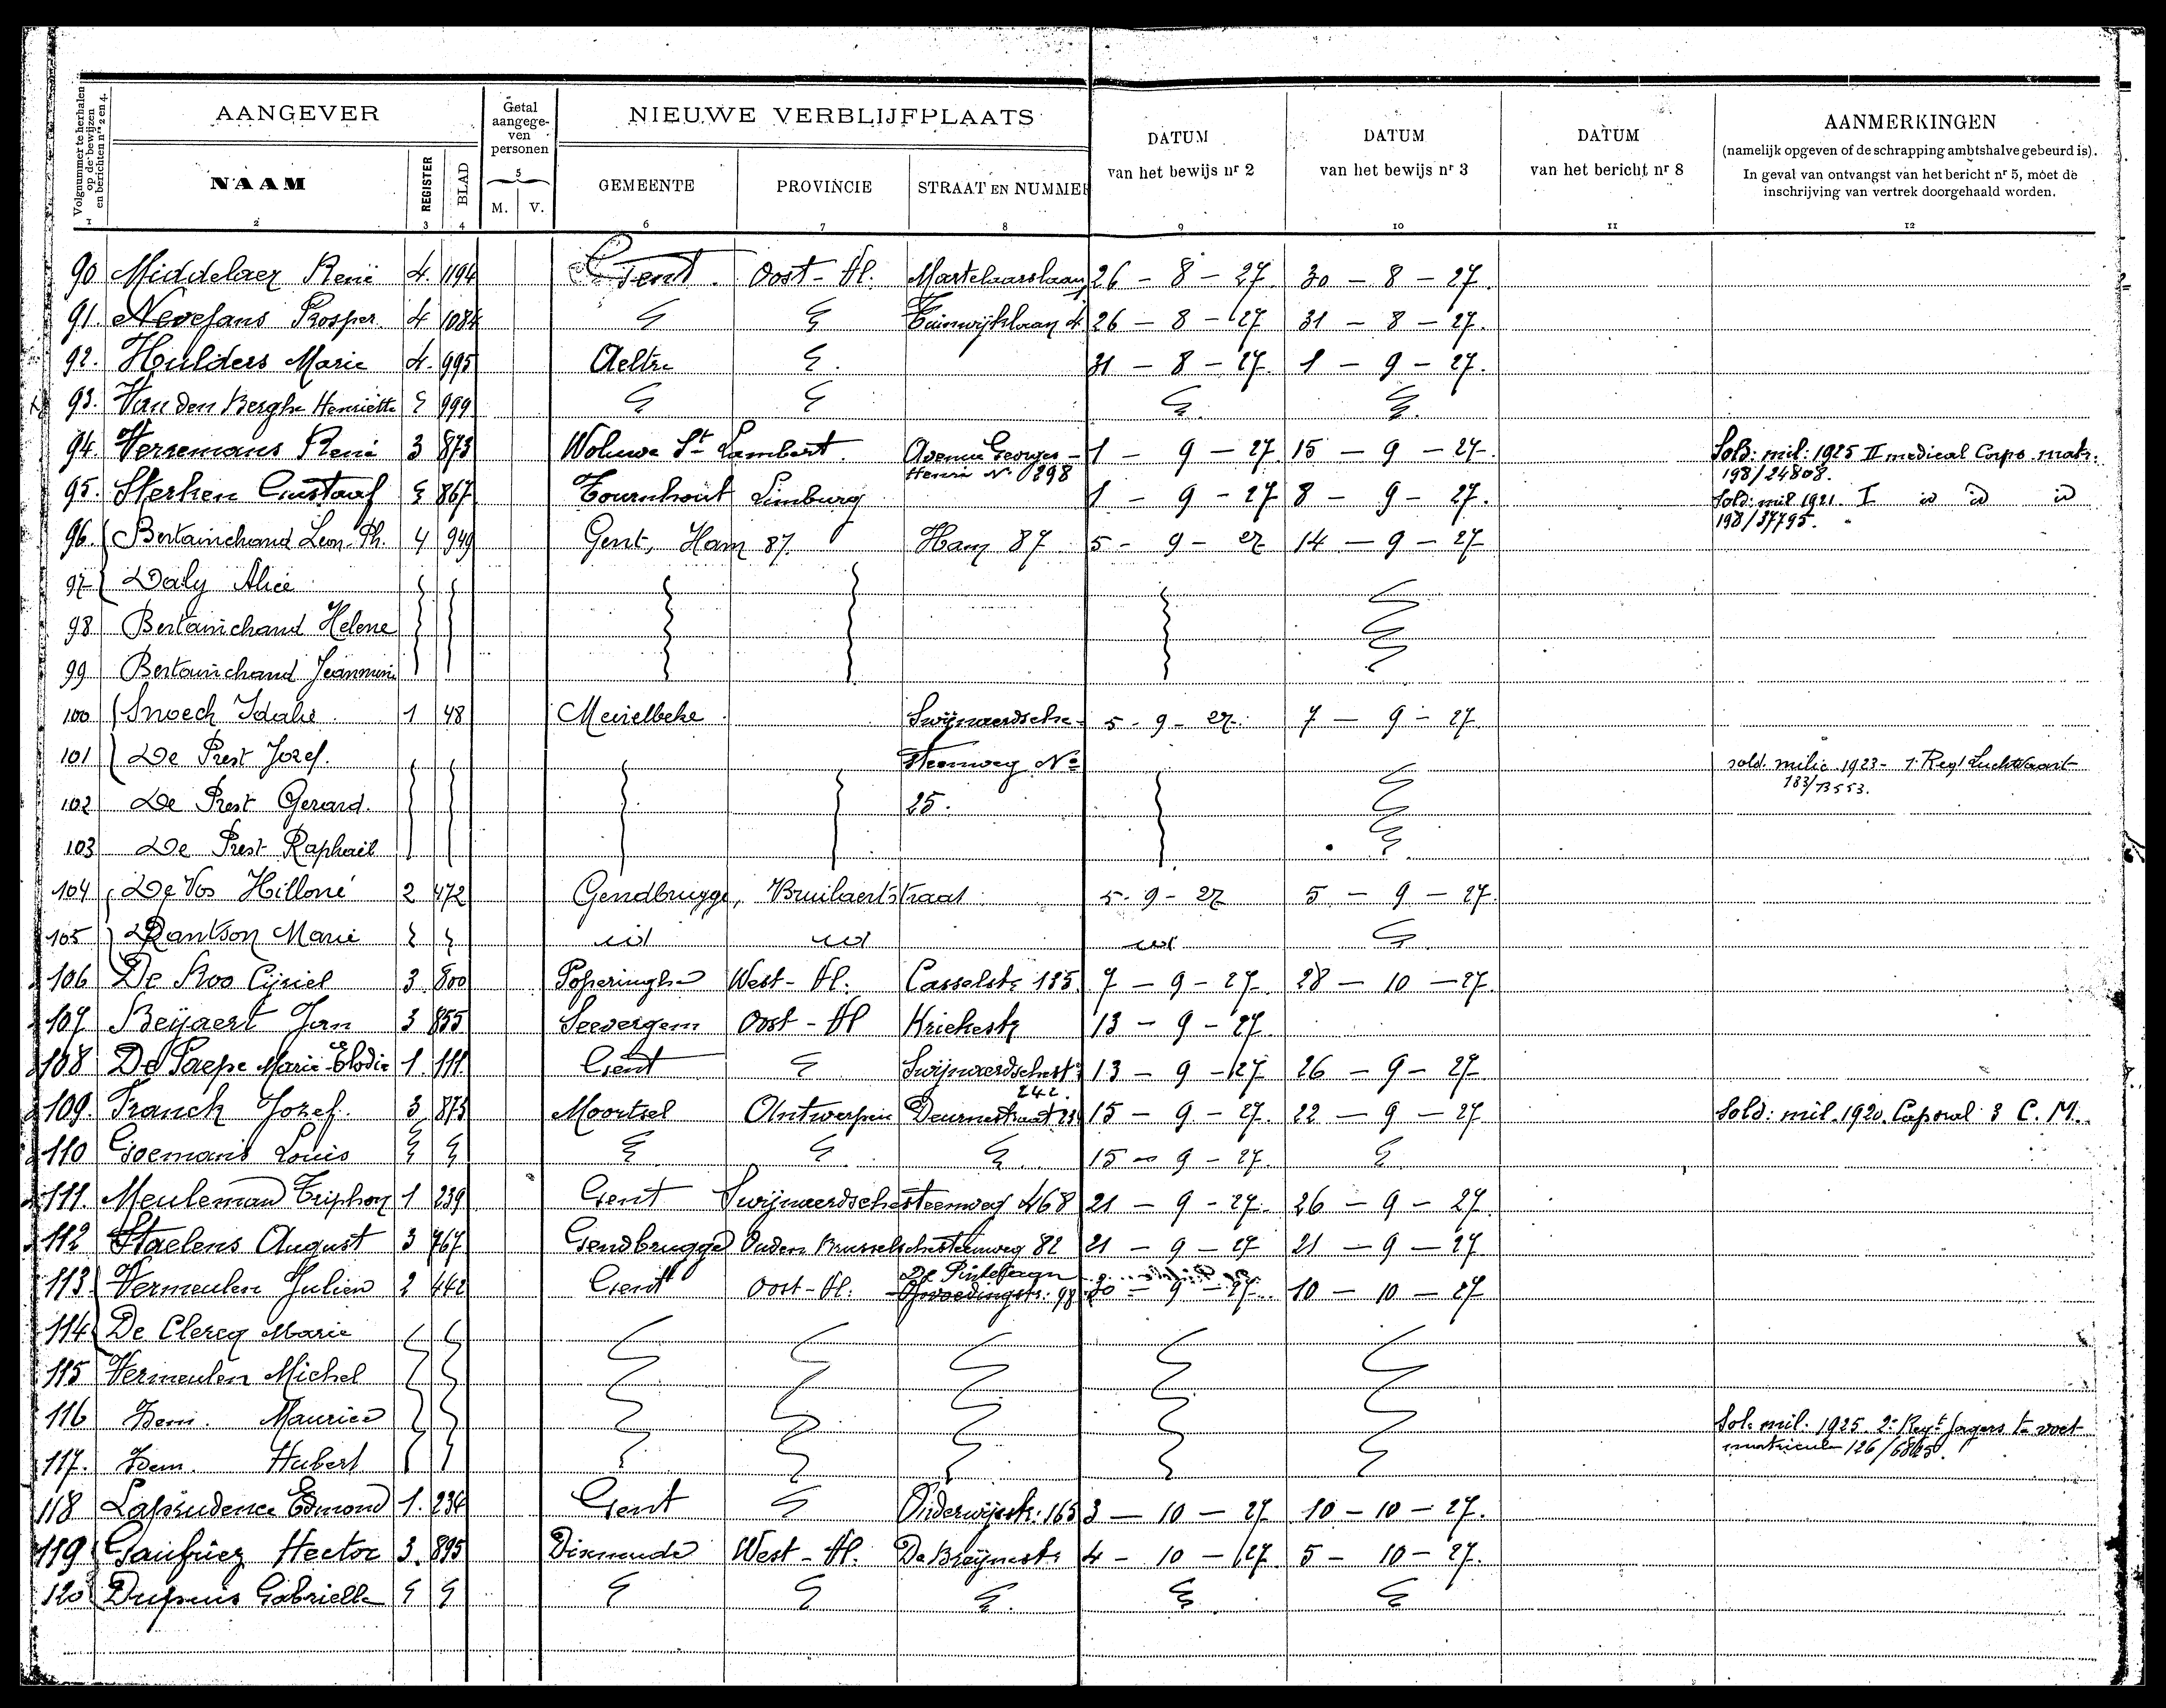 Volgnummer te herhalen op de bewijzen en berichten nrs 2 en 4.
AANGEVER
Getal aangegeven personen
NIEUWE VERBLIJFPLAATS
DATUM van het bewijs nr 2
DATUM van het bewijs nr 3
DATUM van het bericht nr 8
AANMERKINGEN
(namelijk opgeven of de schrapping ambtshalve gebeurd is).
In geval van ontvangst van het bericht nr 5, moet de
inschrijving van vertrek doorgehaald worden.
NAAM REGISTER BLAD M. V. GEMEENTE PROVINCIE STRAAT EN NUMMER
1 2 3 4 5 6 7 8 9 10 11 12
90 Middelaer René 4. 1194 Gent. Oost-Vl. Martelaarslaan 26 - 8 - 27. 30 - 8 - 27.
91 Nevejans Prosper. 4 1084 Tuinwijklaan 4 26 - 8 - 27 31 - 8 - 27.
92. Hulders Marie 4. 995 Aeltre 31 - 8 - 27. 1 - 9 - 27.
93. Van den Berghe Henriette 999
94. Versemans René 3 873 Woluwe St Lambert. Avenue Georges - 1 - 9 - 27. 15 - 9 - 27. Sold: mil: 1925 II medical Corps. matr.
Henri No 298 198/24808.
95. Sterken Gustaaf 867 Tournhout Limburg 1 - 9 - 27 8 - 9 - 27. Sold: mil 1921. I id id id
198/37795.
96. Bertainchand Leon. Ph. 4 949 Gent, Ham 87. Ham 87 5 - 9 - 27 14 - 9 - 27
97 Daly Alice
98 Bertainchand Helene
99 Bertainchand Jeannine
100 Snoeck Idalie 1 48 Meirelbeke Swijnaerdsche- 5 - 9 - 27. 7 - 9 - 27
101 De Prest Jozef. Steenweg No sold. milic 1923 - 1. Regt Luchtvaart
183/73553.
102 De Prest Gerard. 25.
103 De Prest Raphaël
104 De Vos Hilloné 2 472 Gendbrugge, Bruilaertstraat 5 - 9 - 27 5 - 9 - 27.
105 Dantson Marie id id id
106 De Roo Cijriel 3 800 Poperinghe West-Vl. Casselstr 185. 7 - 9 - 27. 28 - 10 - 27.
107. Beijaert Jan 3 855 Seevergem Oost-Vl Kriekestr 13 - 9 - 27
108 De Paepe Marie-Elodie 1. 111. Gent Swijnaerdschest: 13 - 9 - 27 26 - 9 - 27
242.
109. Franck Jozef. 3 873 Moortsel Antwerpen Deurnestraat 15 - 9 - 27. 22 - 9 - 27 Sold: mil. 1920. Caporal 3 C. M.
110 Goemans Louis 15 - 9 - 27.
111. Meuleman Triphon 1 239 Gent Swijnaerdschesteenweg 468 21 - 9 - 27. 26 - 9 - 27.
112 Staelens August 3 767 Gendbrugge Ouden Brusselschesteenweg 82 21 - 9 - 27 21 - 9 - 27
De Pintelaan
113 Vermeulen Julien 2 442 Gent Oost-Vl. Opvoedingstr: 98 30 - 9 - 27. 10 - 10 - 27
114 De Clercq Marie
115 Vermeulen Michel
116 Idem. Maurice Sol: mil. 1925. 2e Regt Jagers te voet
117. Idem. Hubert matricule 126/
118 Laprudence Edmond 1. 234 Gent Onderwijsstr: 165 3 - 10 - 27 10 - 10 - 27.
119 Gaufriez Hector 3. 895 Dixmude West-Vl. De Breijnestr 4 - 10 - 27. 5 - 10 - 27.
120 Dupuis Gabrielle